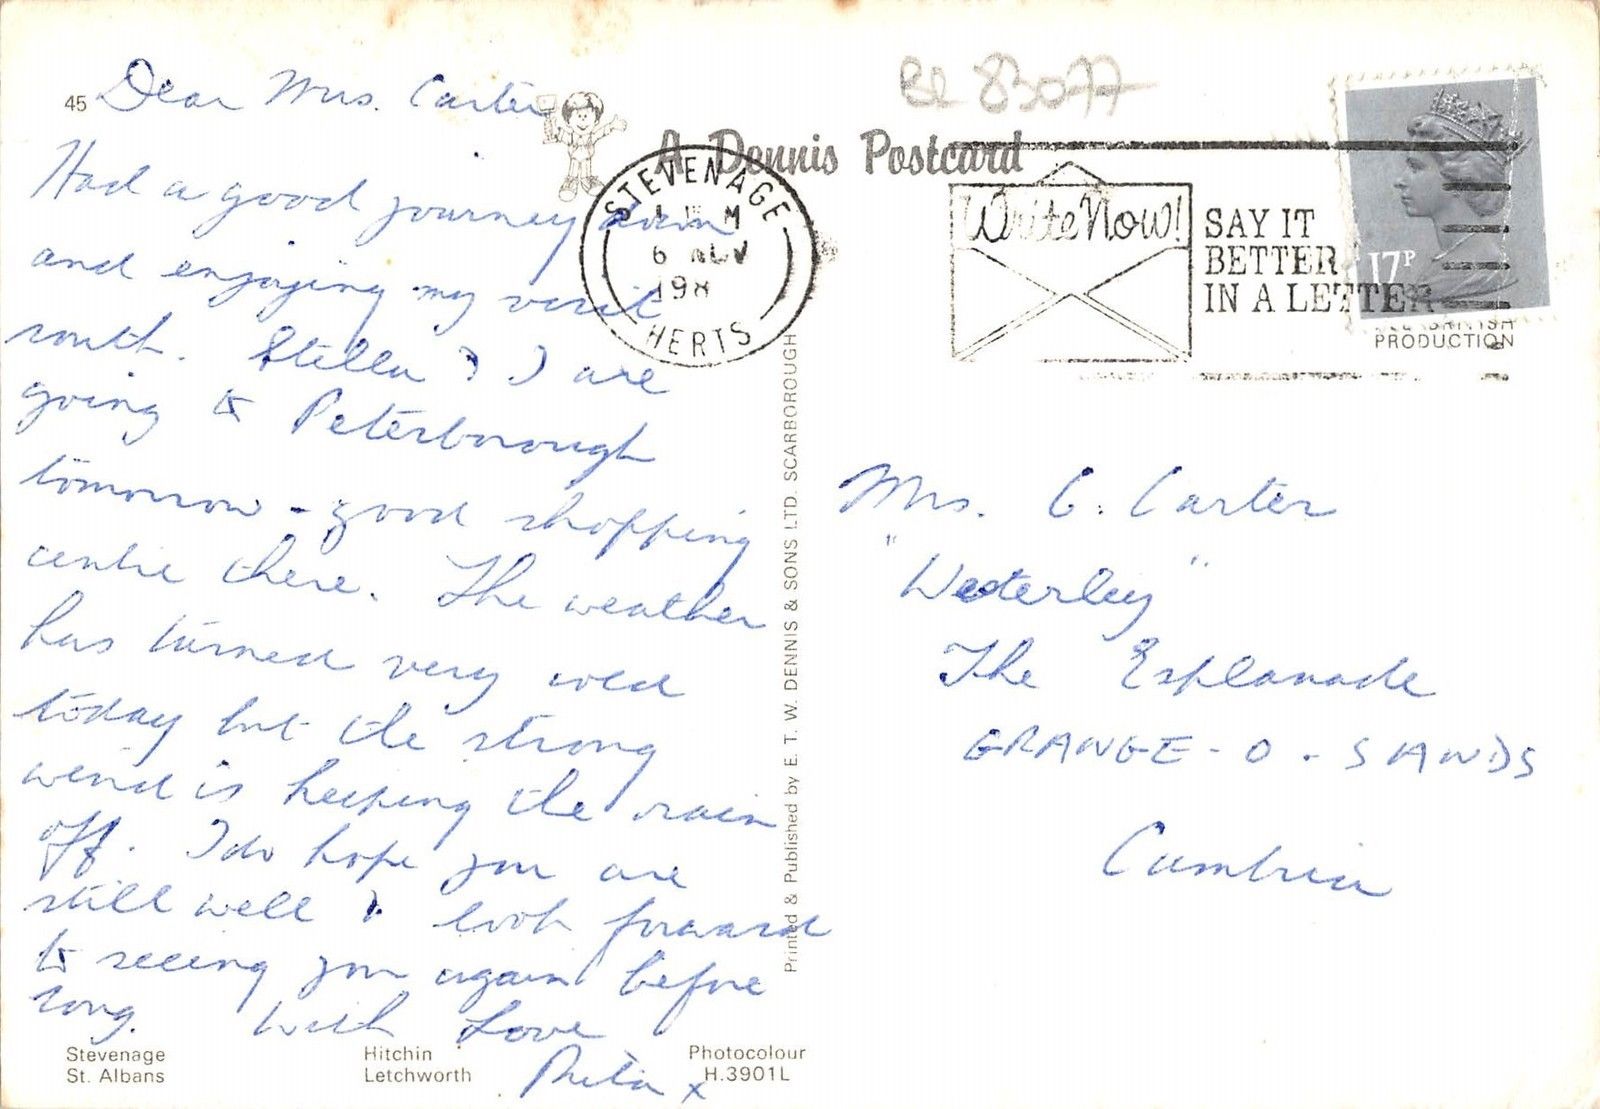 45
Dear Mrs. Carter
Had a good journey down
and enjoying my visit
south. Stella & I are
going to Peterborough
tomorrow - good shopping
centre there. The weather
has turned very cold
today but the strong
wind is keeping the rain
off. I do hope you are
still well & look forward
to seeing you again before
long. With Love
Rita x
Stevenage
St. Albans
Hitchin
Letchworth
Photocolour
H.3901L
A Dennis Postcard
Printed & Published by E. T. W. DENNIS & SONS LTD. SCARBOROUGH
STEVENAGE
6 NOV
198
HERTS
83077
Write Now!
SAY IT
BETTER
IN A LETTER
17P
BRITISH
PRODUCTION
Mrs. C. Carter
"Westerley"
The Esplanade
GRANGE-O-SANDS
Cumbria